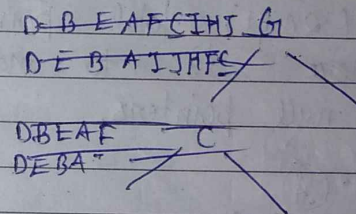 D B E A F C I H J G
D E B A I J H F C
D B E A F C
D E B A